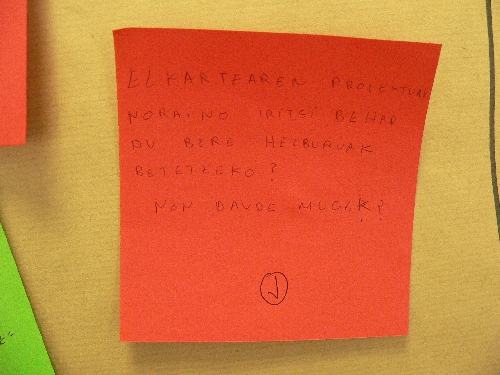 ELKARTEAREN PROIEKTUAK
NORAINO IRITSI BEHAR
DU BERE HELBURUAK
BETETZEKO?
NON DAUDE MUGAK?